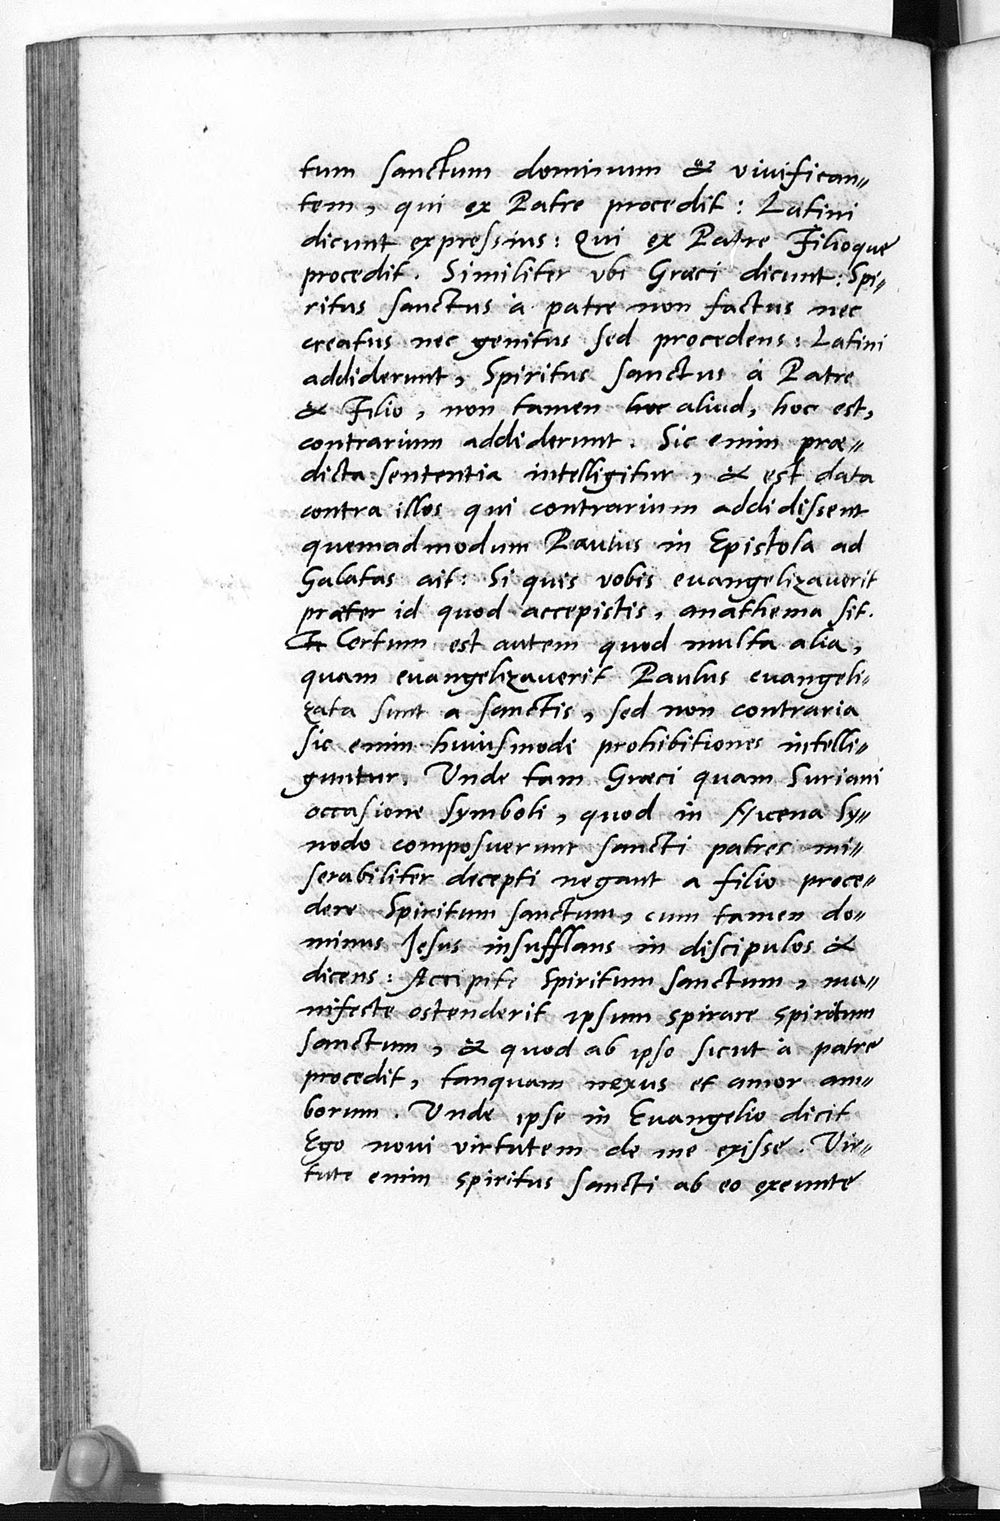 tum sanctum dominum & vivifican=
tem, qui ex Patre procedit: Latini
dicunt expressius: Qui ex Patre Filioque
procedit. Similiter vbi Græci dicunt: Spi=
ritus sanctus à patre non factus nec
creatus nec genitus sed procedens: Latini
addiderunt, Spiritus sanctus à Patre
& Filio, non tamen hoc aliud, hoc est,
contrarium addiderunt. Sic enim præ=
dicta sententia intelligitur, & est data
contra illos qui contrarium addidissent
quemadmodum Paulus in Epistola ad
Galatas ait: Si quis vobis euangelizauerit
præter id quod accepistis, anathema sit.
Certum est autem quod multa alia,
quam euangelizauerit Paulus euangeli=
zata sunt a sanctis, sed non contraria
sic enim huiusmodi prohibitiones intelli=
guntur. Unde tam Græci quam Suriani
occasione Symboli, quod in Nicena Sy=
nodo composuerunt sancti patres mi=
serabiliter decepti negant a filio proce=
dere Spiritum sanctum, cum tamen do=
minus Jesus insufflans in discipulos &
dicens: Accipite Spiritum sanctum, ma=
nifeste ostenderit ipsum spirare spiritum
sanctum, & quod ab ipso sicut à patre
procedit, tanquam nexus et amor am=
borum. Unde ipse in Euangelio dicit
Ego noui virtutem de me exisse. Vir=
tute enim spiritus sancti ab eo exeunte